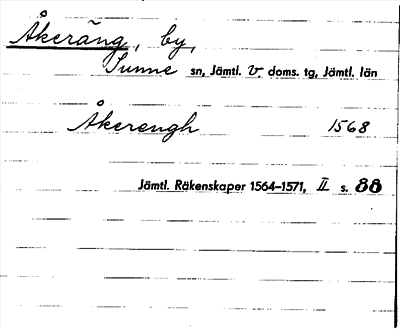 Åkeräng, by,
Sunne sn, Jämtl. v. doms. tg, Jämtl. län
Åkerengh 1568
Jämtl. Räkenskaper 1564–1571, II s. 88